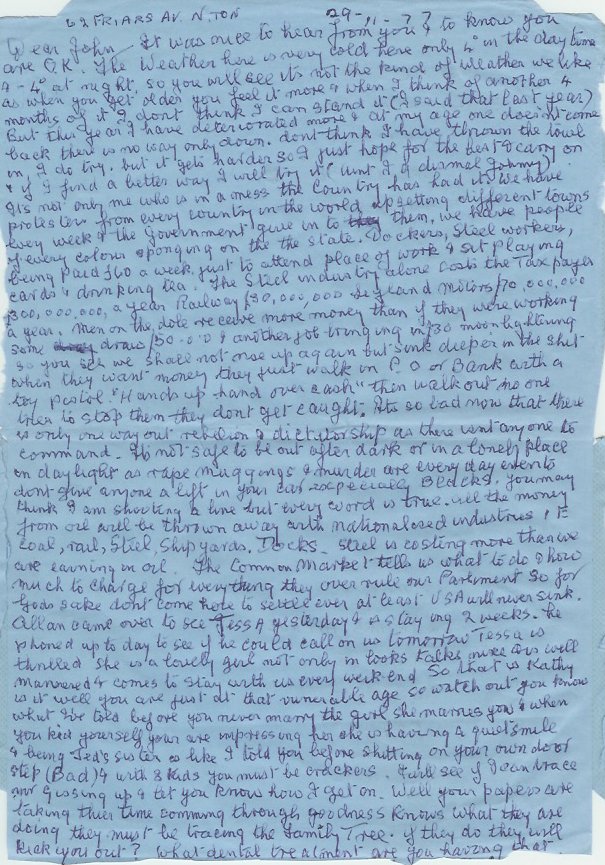 62 FRIARS AV. N. TON 29-11-77
Dear John - It was nice to hear from you & to know you
are OK. The Weather here is very cold here only 4° in the day time
& - 4° at night. so you will see its not the kind of weather we like
as when you get older you feel it more & when I think of another 4
months of it I dont think I can stand it (I said that last year)
But this year I have deteriorated more & at my age one doesnt come
back there is no way only down. dont think I have thrown the towl
in, I do try. but it gets harder so I just hope for the best & carry on
& if I find a better way I will try it (aint I a dismal Johnny)
Its not only me who is in a mess the Country has had it we have
protesters from every country in the world upsetting different towns
every week & the Government give in to them, we have people
of every colour sponging on the the state. Dockers, Steel workers,
being paid £60 a week, just to attend place of work & sit playing
cards & drinking tea. The Steel industry alone costs the Tax payer
£300,000,000, a year Railway £30,000,000 Leyland Motors £70,000,000
a year. Men on the dole receive more money than if they were working
some draws £50-0-0 & another job bringing in £30 moonlightering
so you see we shall not rise up again but sink deeper in the shit
when they want money they just walk in P O or Bank with a
toy pistol "Hands up hand over cash" then walk out no one
tries to stop them they dont get caught. Its so bad now that there
is only one way out rebelion & dictatorship as there isnt anyone to
command. Its not safe to be out after dark or in a lonely place
in daylight as rape muggings & murder are every day events
dont give anyone a lift in your car especially Blacks. You may
think I am shooting a line but every word is true. all the money
from oil will be thrown away with nationalised industries, I E
Coal, rail, Steel, Ship yards. Docks. Steel is costing more than we
are earning in oil. The Common Market tells us what to do & how
much to charge for everything they over rule our Parliment So for
Gods sake dont come here to settle ever at least USA will never sink.
Allan came over to see Tessa yesterday & is staying 2 weeks. he
phoned up to day to see if he could call on us tomorrow Tessa is
thrilled she is a lovely girl not only in looks talks nice & is well
mannered & comes to stay with us every week end So that is Kathy
is it well you are just at that vunerable age so watch out you know
what Ive told before you never marry the girl she marries you & when
you kid yourself your are impressing her she is having a quiet smile
& being Ted's sister is like I told you before shitting on your own door
step (Bad) & with 8 kids you must be crackers. I will see if I can trace
up & let you know how I get on. Well your papers are
taking thier time comming through goodness knows what they are
doing they must be tracing the family Tree. if they do they will
kick you out? What dental treatment are you having that